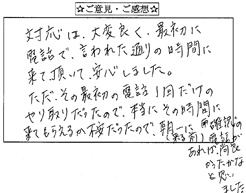 ☆ご意見・ご感想☆
対応は、大変良く、最初に
電話で、言われた通りの時間に
来て頂いて安心しました。
ただ、その最初の電話1回だけの
やり取りだったので、本当にその時間に
来てもらえるか不安だったので、朝一に
(来る前)確認の
電話が
あれば、尚良
かったかなと
思い
ました